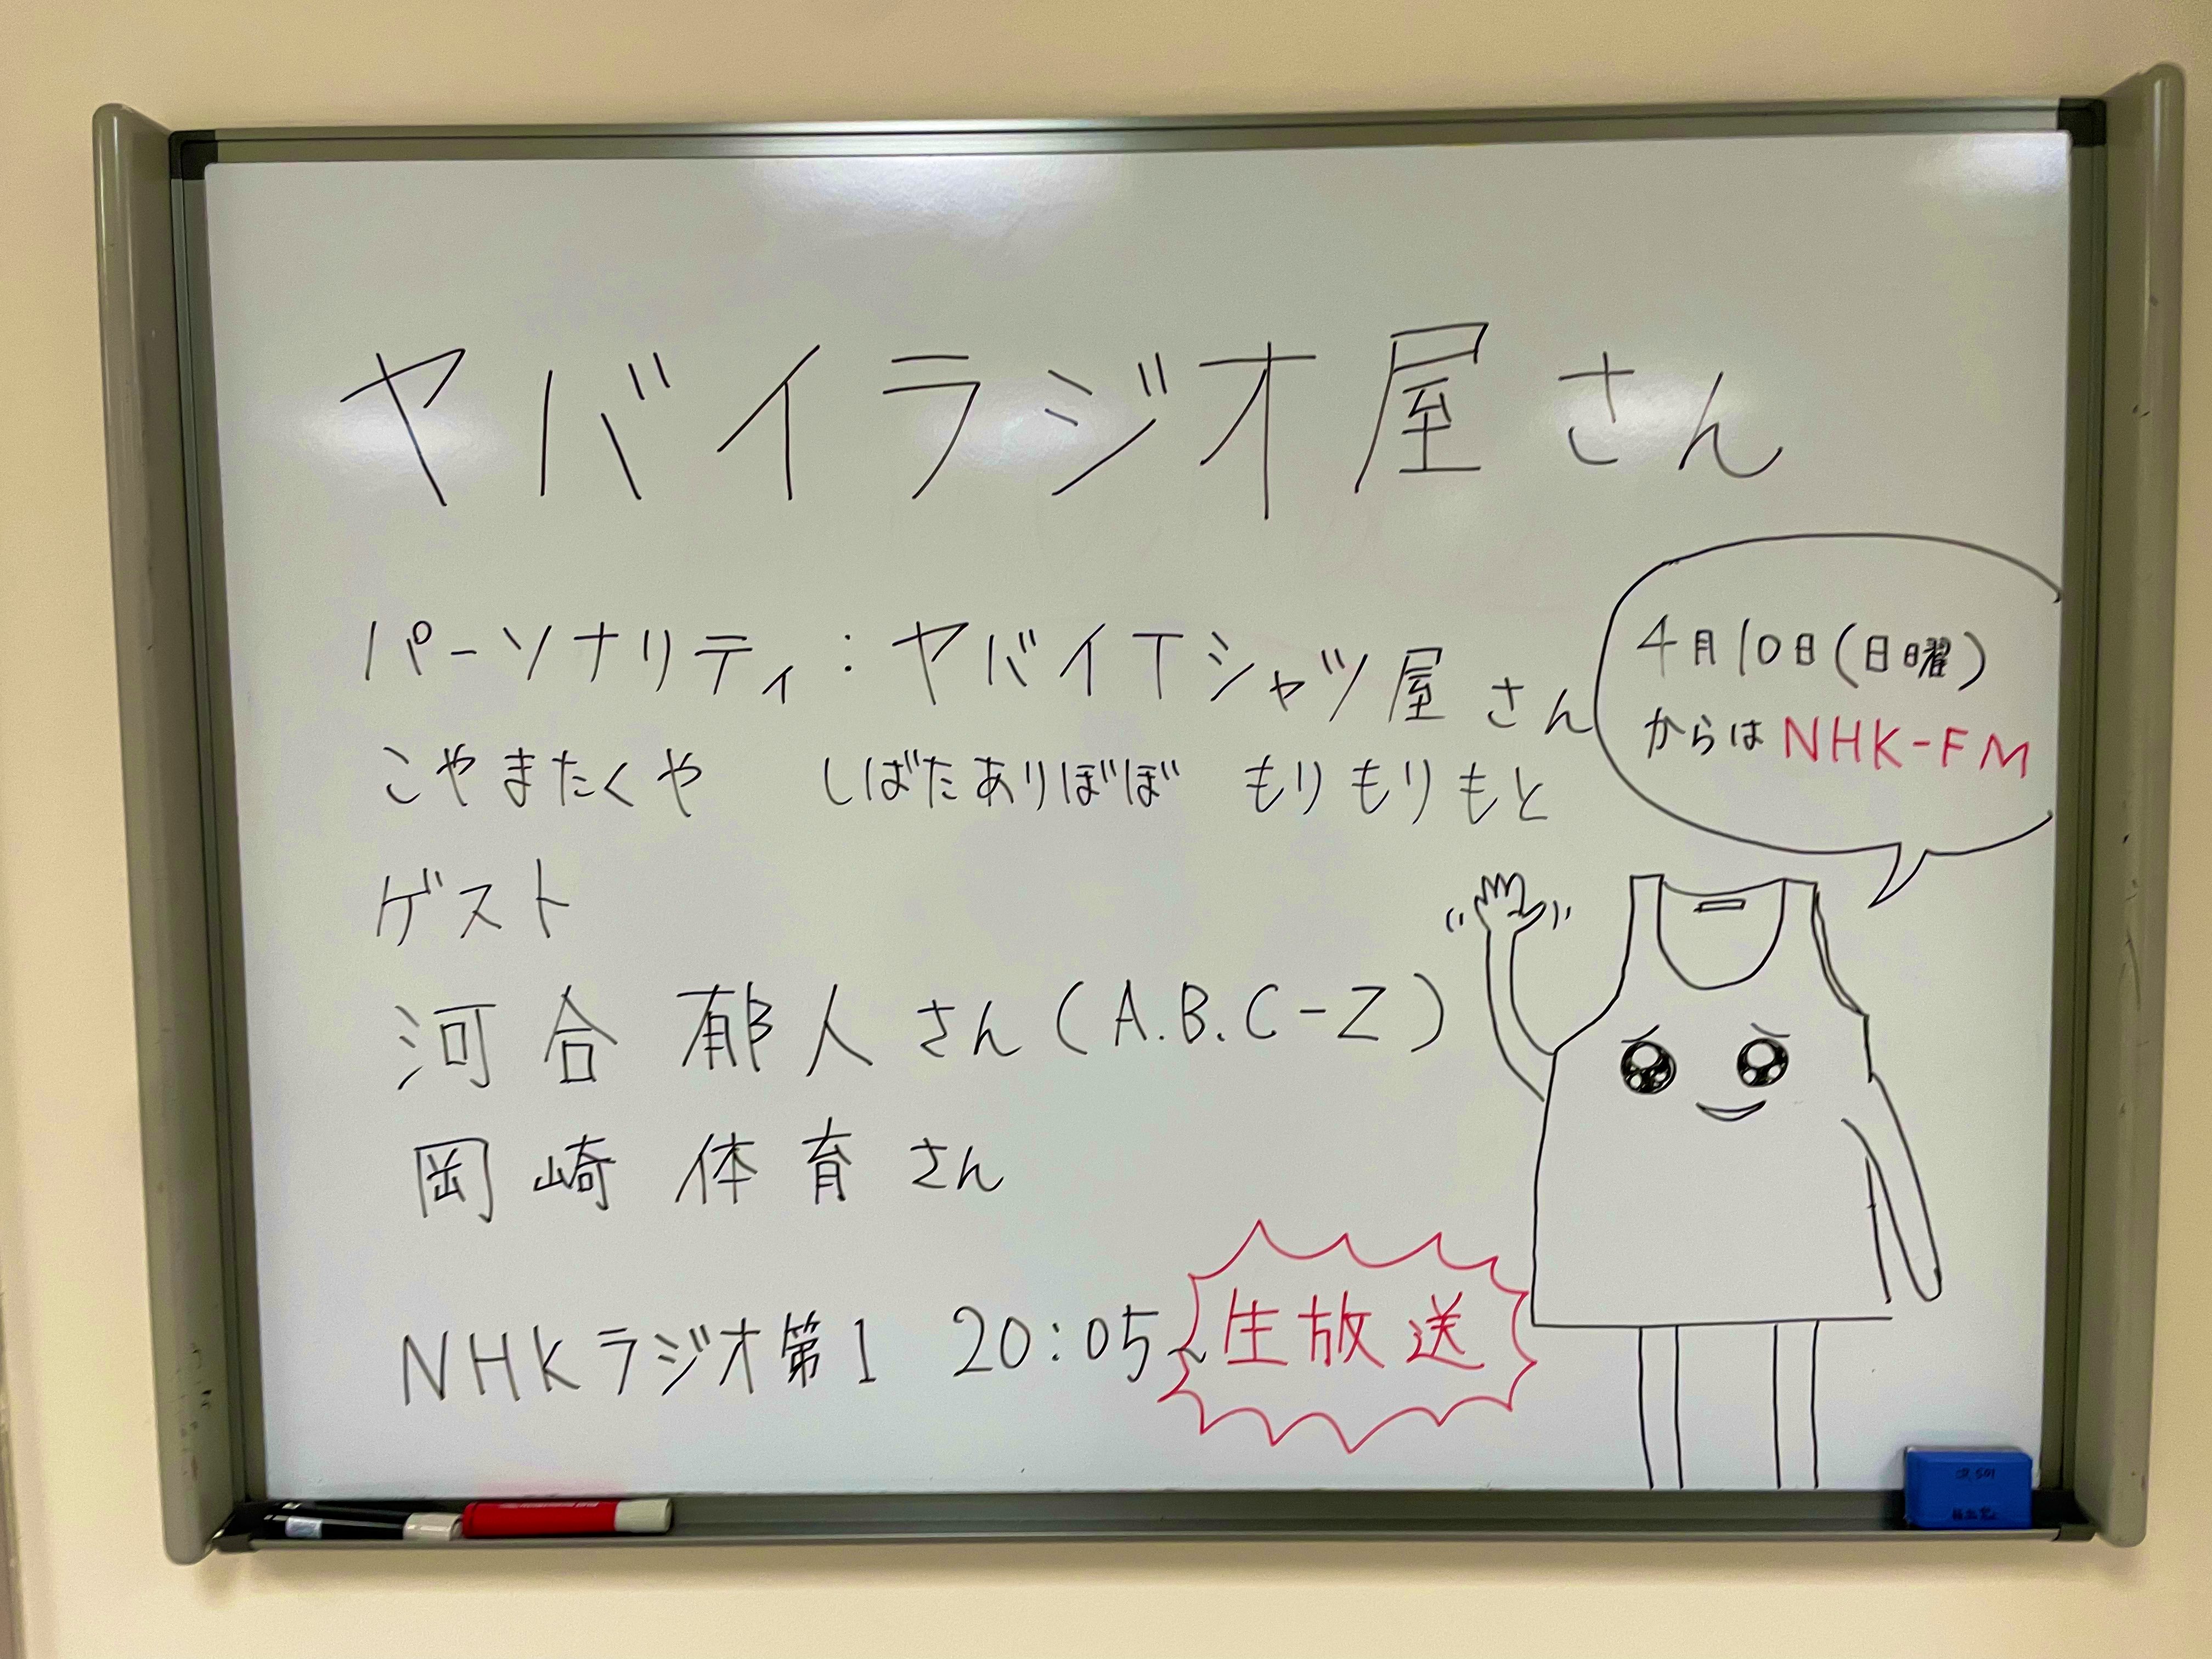 ヤバイラジオ屋さん
パーソナリティ:ヤバイTシャツ屋さん
こやまたくや しばたありぼぼ もりもりもと
ゲスト
河合郁人さん(A.B.C-Z)
岡崎体育さん
NHKラジオ第1 20:05〜生放送
4月10日(日曜)
からはNHK-FM